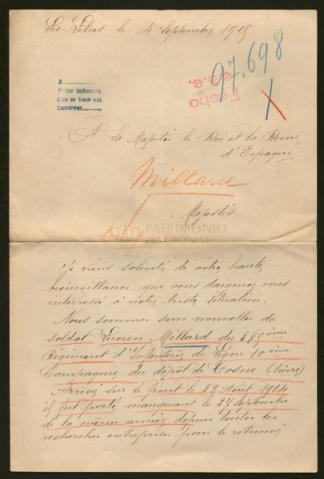 le 4 Septembre 1915
97.698
Fecho
A Sa Majesté le Roi et la Reine
d'Espagne
Millard
Majestés
PATRIMONIO
NACIONAL
Je viens solicité de votre haute
bienveillance que vous daigniez vous
interressé à notre triste situation.
Nous sommes sans nouvelles du
soldat Lucien Millard du
Régiment d'Infanterie de ligne 10ème
Compagnie du dépôt de Cosne (Nièvre)
Arrivé sur le front le 23 Août 1914
et fut porté manquant le 27 Septembre
de la même année depuis toutes les
recherches entreprises pour le retrouvé